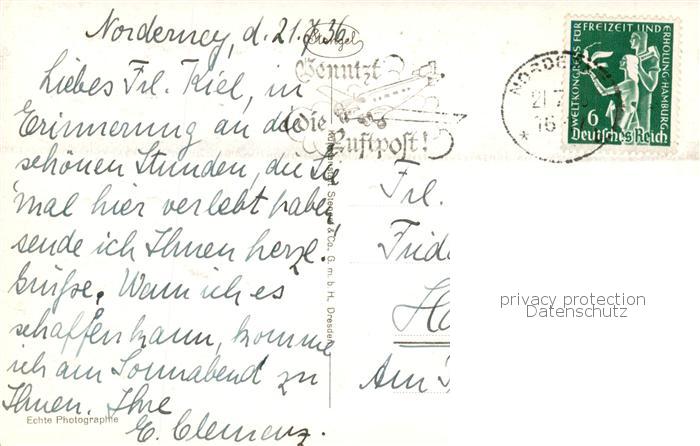 Norderney, d. 21.7.36.
Liebes Frl. Kiel, in
Erinnerung an die
schönen Stunden, die Sie
mal hier verlebt haben
sende ich Ihnen herzl.
Grüße. Wenn ich es
schaffen kann, komme
ich am Sonnabend zu
Ihnen. Ihre
E. Clemenz.
Echte Photographie
Stengel
Benutzt
die
Luftpost!
Stengel & Co., G. m. b. H., Dresden
NORDE
21.7
16
WELTKONGRESS FÜR FREIZEIT UND ERHOLUNG HAMBURG
6
Deutsches Reich
Frl.
Frida
Ha
Am
privacy protection
Datenschutz